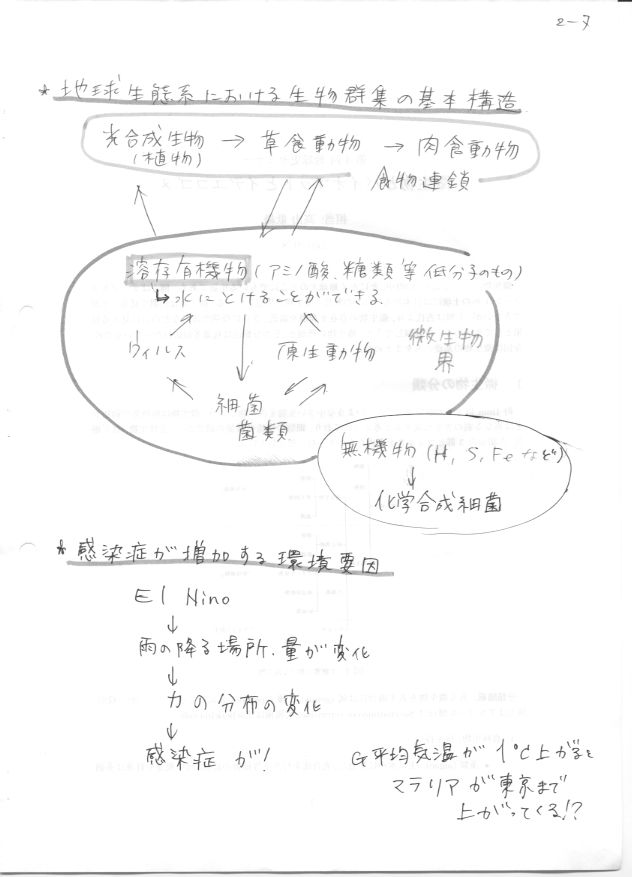 2-7
* 地球生態系における生物群集の基本構造
光合成生物 → 草食動物 → 肉食動物
(植物)
食物連鎖
溶存有機物(アミノ酸、糖類等低分子のもの)
↳水にとけることができる
ウィルス 原生動物 微生物界
細菌
菌類
無機物(H, S, Feなど)
↓
化学合成細菌
* 感染症が増加する環境要因
El Nino
↓
雨の降る場所、量が変化
↓
カの分布の変化
↓
感染症が!
平均気温が1℃上がると
マラリアが東京まで
上がってくる!?